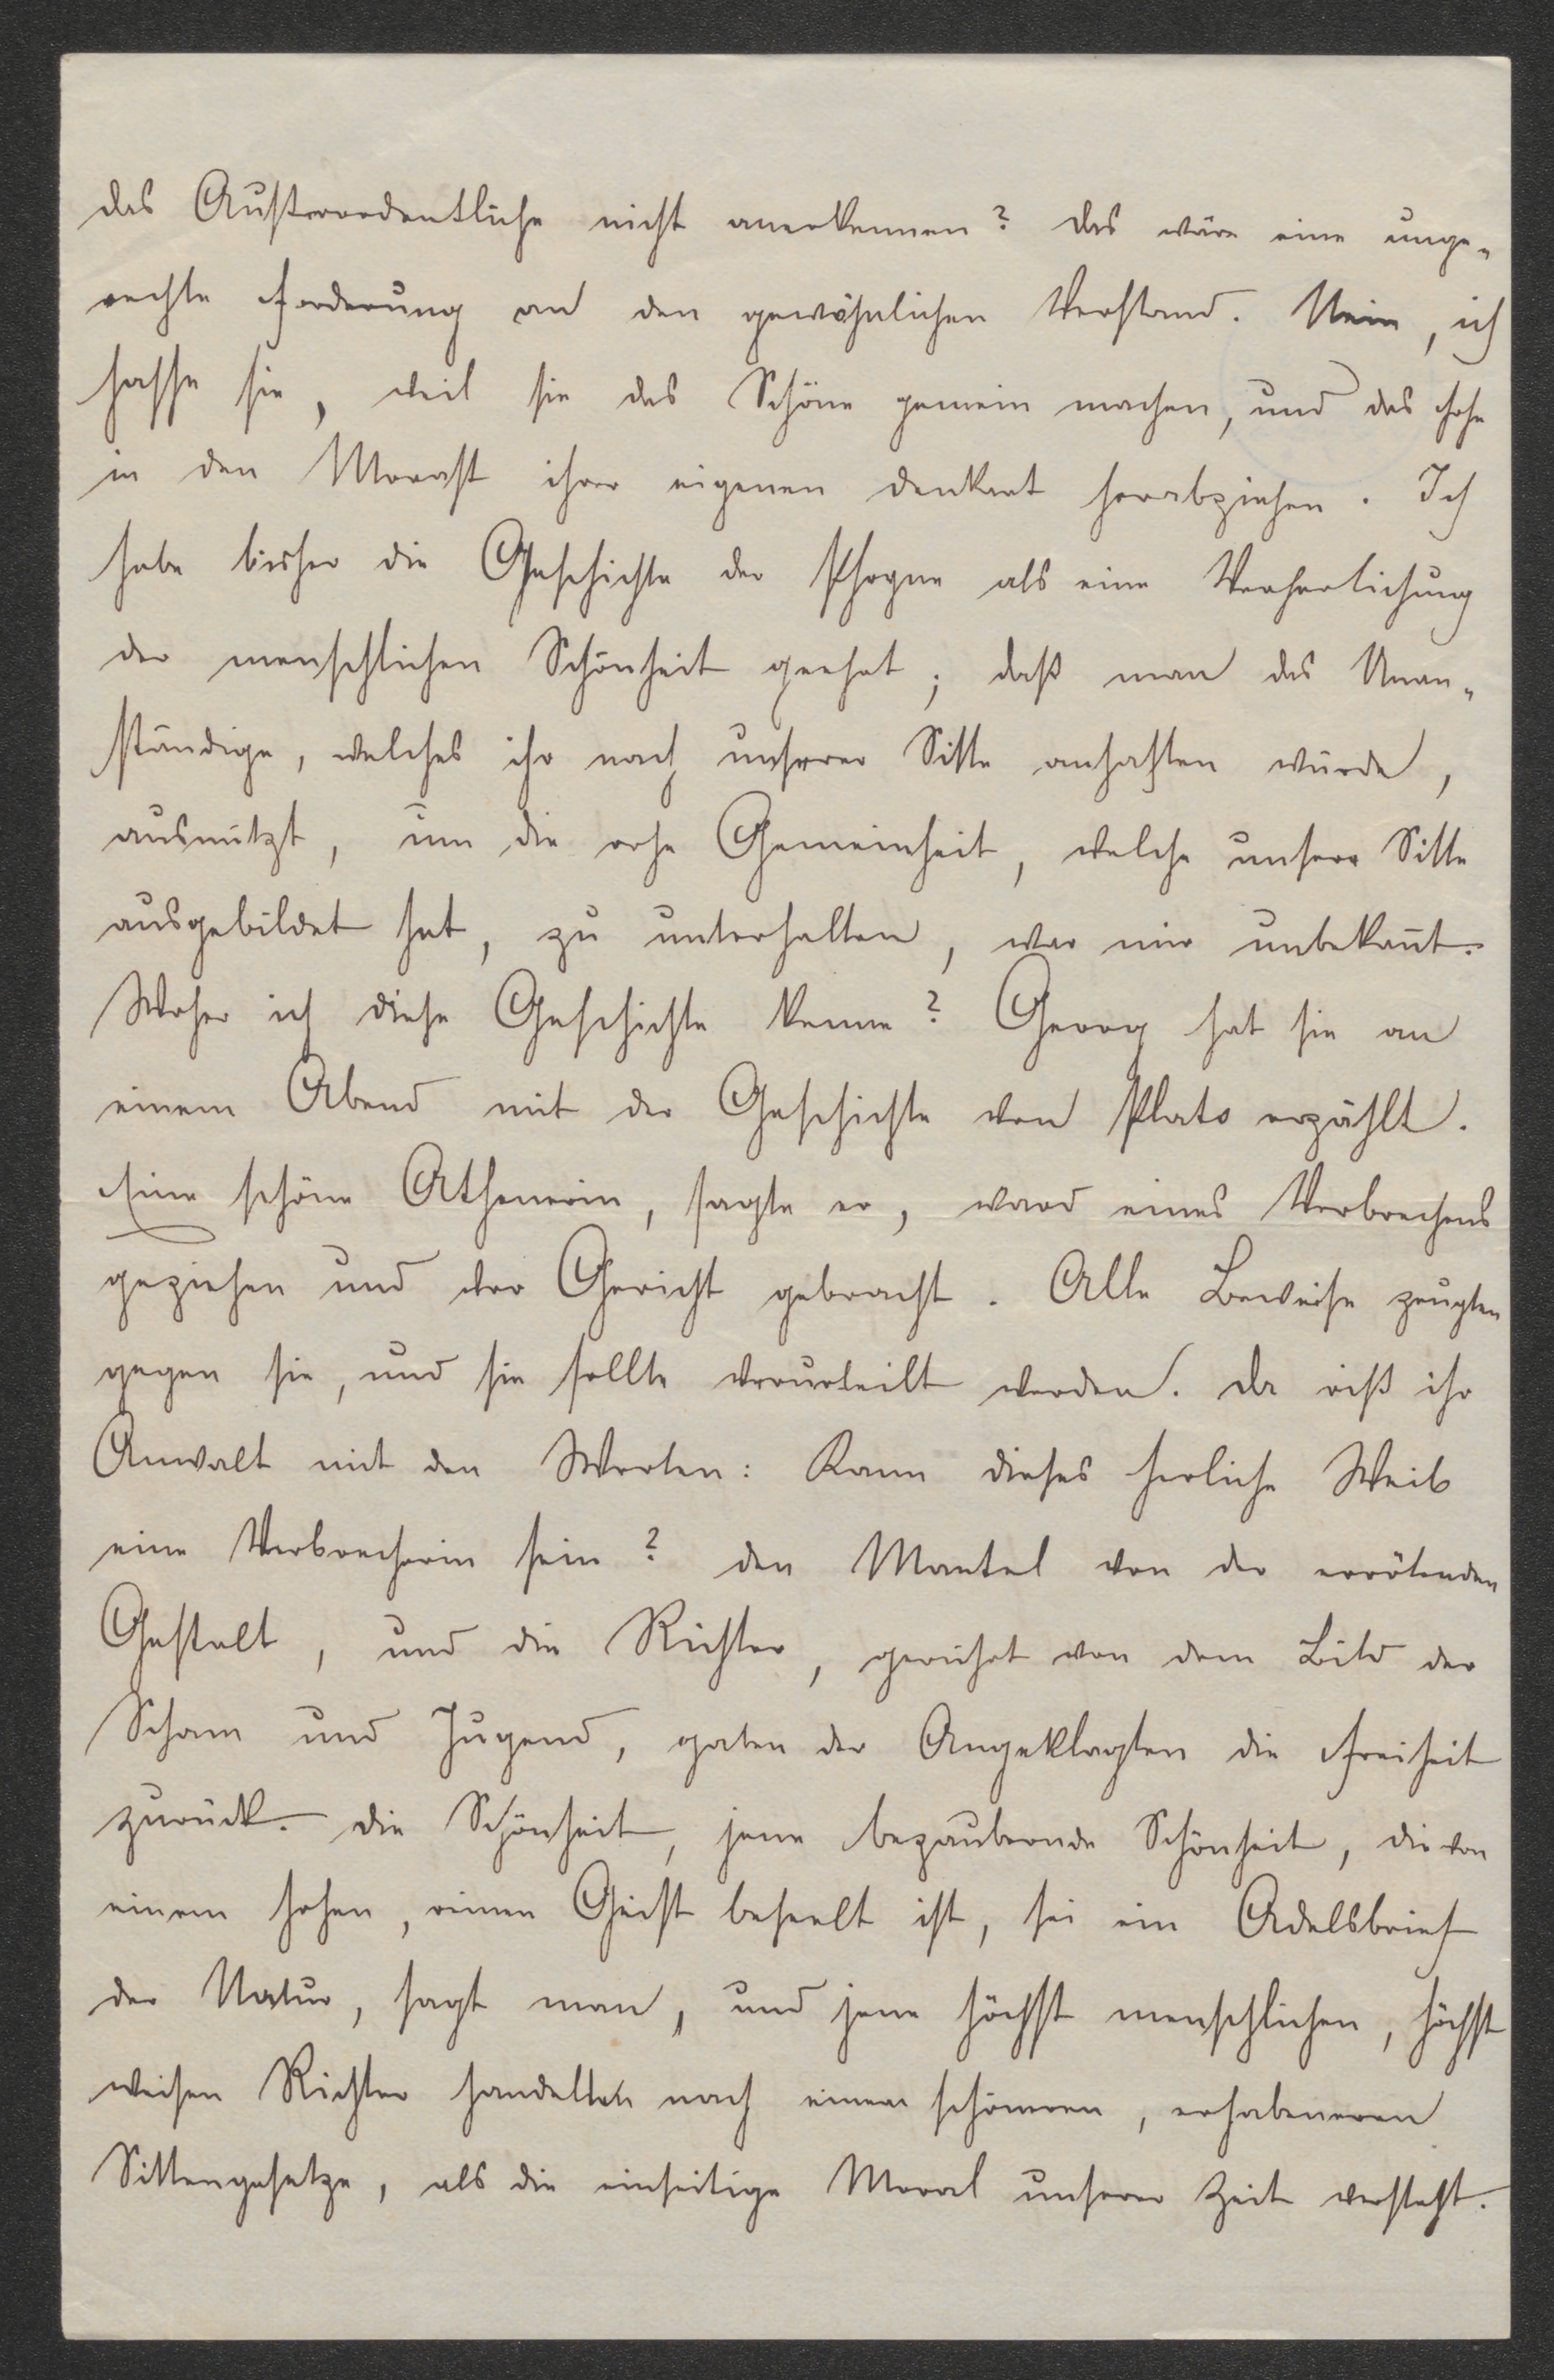 das Außerordentliche nicht anerkennen? Das wäre eine unge-
rechte Forderung an den gewöhnlichen Verstand. Nein, ich
hasse sie, weil sie das Schöne gemein machen, und das Hohe
in den Morast ihrer eigenen Denkart herabziehen. Ich
habe bisher die Geschichte der Phryne als eine Verherlichung
der menschlichen Schönheit geehrt; daß man das Unan-
ständige, welches ihr nach unserer Sitte anhaften würde,
ausnützt, um die rohe Gemeinheit, welche unsere Sitte
ausgebildet hat, zu unterhalten, war mir unbekan̄t.
Woher ich diese Geschichte kenne? Georg hat sie an
einem Abend mit der Geschichte von Plato erzählt.
Eine schöne Athenerin, sagte er, ward eines Verbrechens
geziehen und vor Gericht gebracht. Alle Beweise zeugten
gegen sie, und sie sollte verurteilt werden. Da riß ihr
Anwalt mit den Worten: Kann dieses herliche Weib
eine Verbrecherin sein? den Mantel von der errötenden
Gestalt, und die Richter, gerührt von dem Bild der
Scham und Jugend, gaben der Angeklagten die Freiheit
zurück. Die Schönheit, jene bezaubernde Schönheit, die von
einem hohen, reinen Geist beseelt ist, sei ein Adelsbrief
der Natur, sagt man, und jene höchst menschlichen, höchst
weisen Richter handelten nach einem schöneren, erhabeneren
Sittengesetze, als die einseitige Moral unserer Zeit versteht.